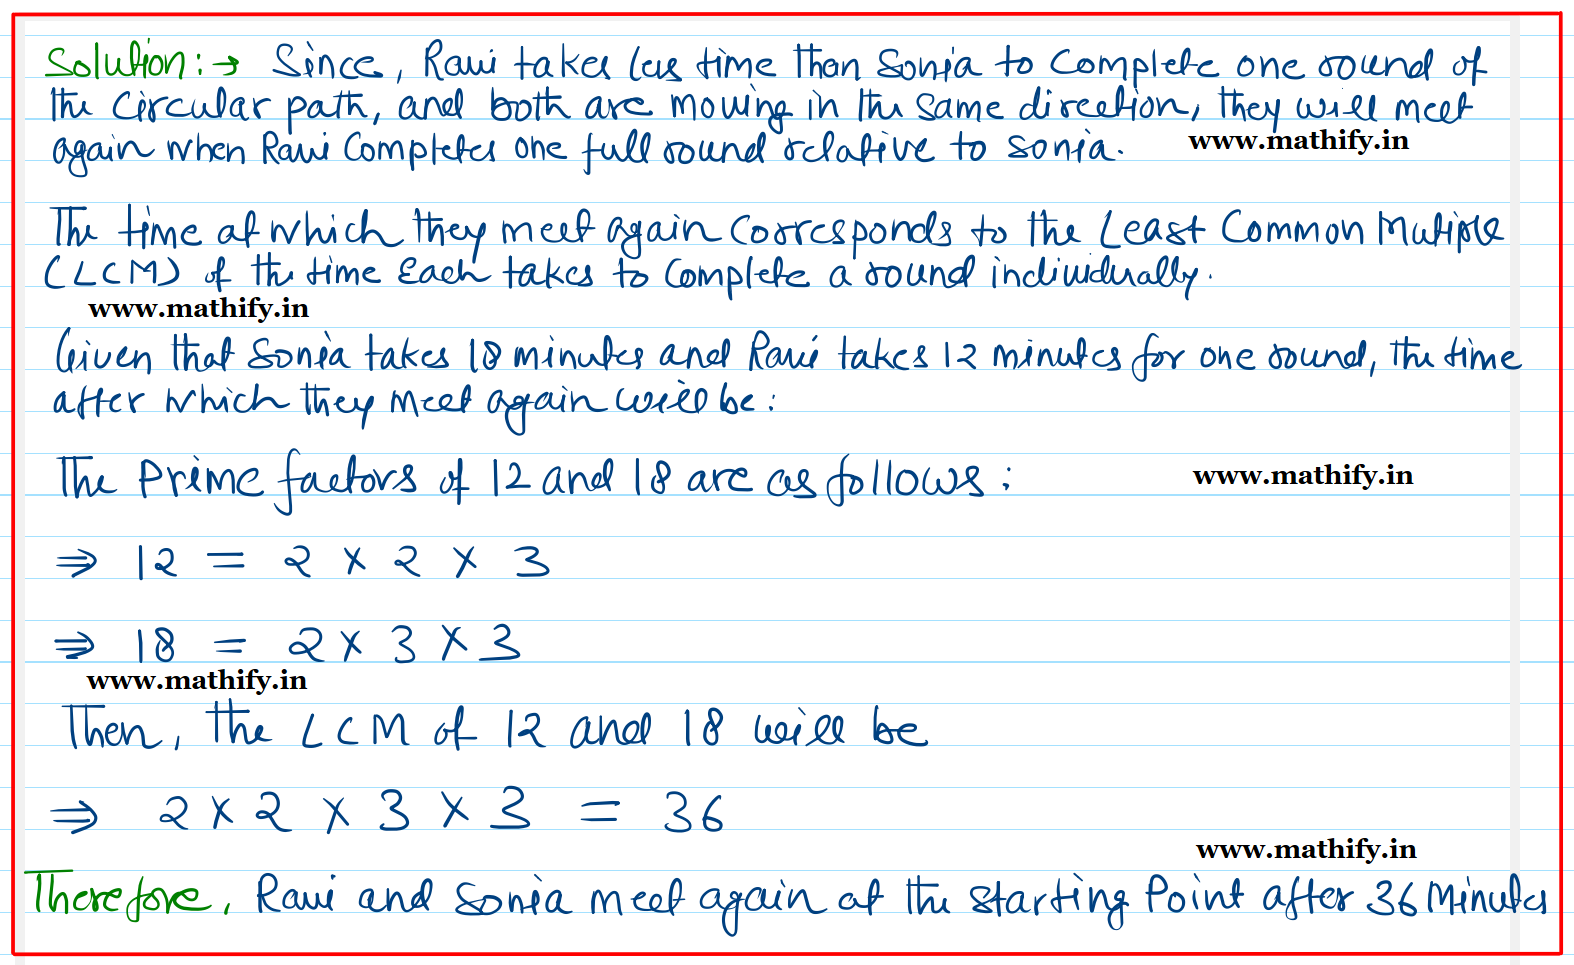 Solution:→ Since, Ravi takes less time than Sonia to complete one round of
the circular path, and both are moving in the same direction, they will meet
www.mathify.in
again when Ravi completes one full round relative to sonia.
The time at which they meet again corresponds to the Least Common Mutiple
(LCM) of the time Each takes to complete a round individually.
www.mathify.in
Given that Sonia takes 18 minutes and Ravi takes 12 minutes for one round, the time
after which they meet again will be:
The Prime factors of 12 and 18 are as follows:
www.mathify.in
⇒ 12 = 2 × 2 × 3
⇒ 18 = 2 × 3 × 3
www.mathify.in
Then, the LCM of 12 and 18 will be
⇒ 2 × 2 × 3 × 3 = 36
www.mathify.in
Therefore, Ravi and Sonia meet again at the starting Point after 36 Minutes